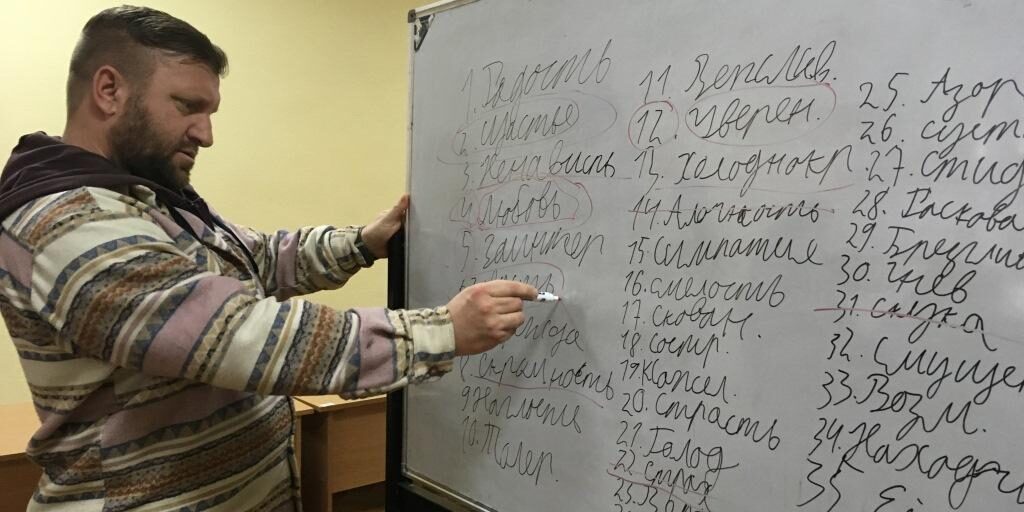 1. Радость
2. Щастье
3. Ненависть
4. Любовь
5. Заинтер
8. Скромность
9. Наглость
10. Толер.
11. Вепслив.
12. Уверен.
13. Холоднокр
14. Алочность
15. Симпатия
16. Смелость
17. Скован.
18. Состр.
19. Капсл.
20. Страсть
21. Голод
22. Страх
25. Азор
26. Суст
27. Стид
28. Раскова
29. Брезгли
30. Гнев
31. Скука
32. Смуще
33. Возм.
34. Наход
35